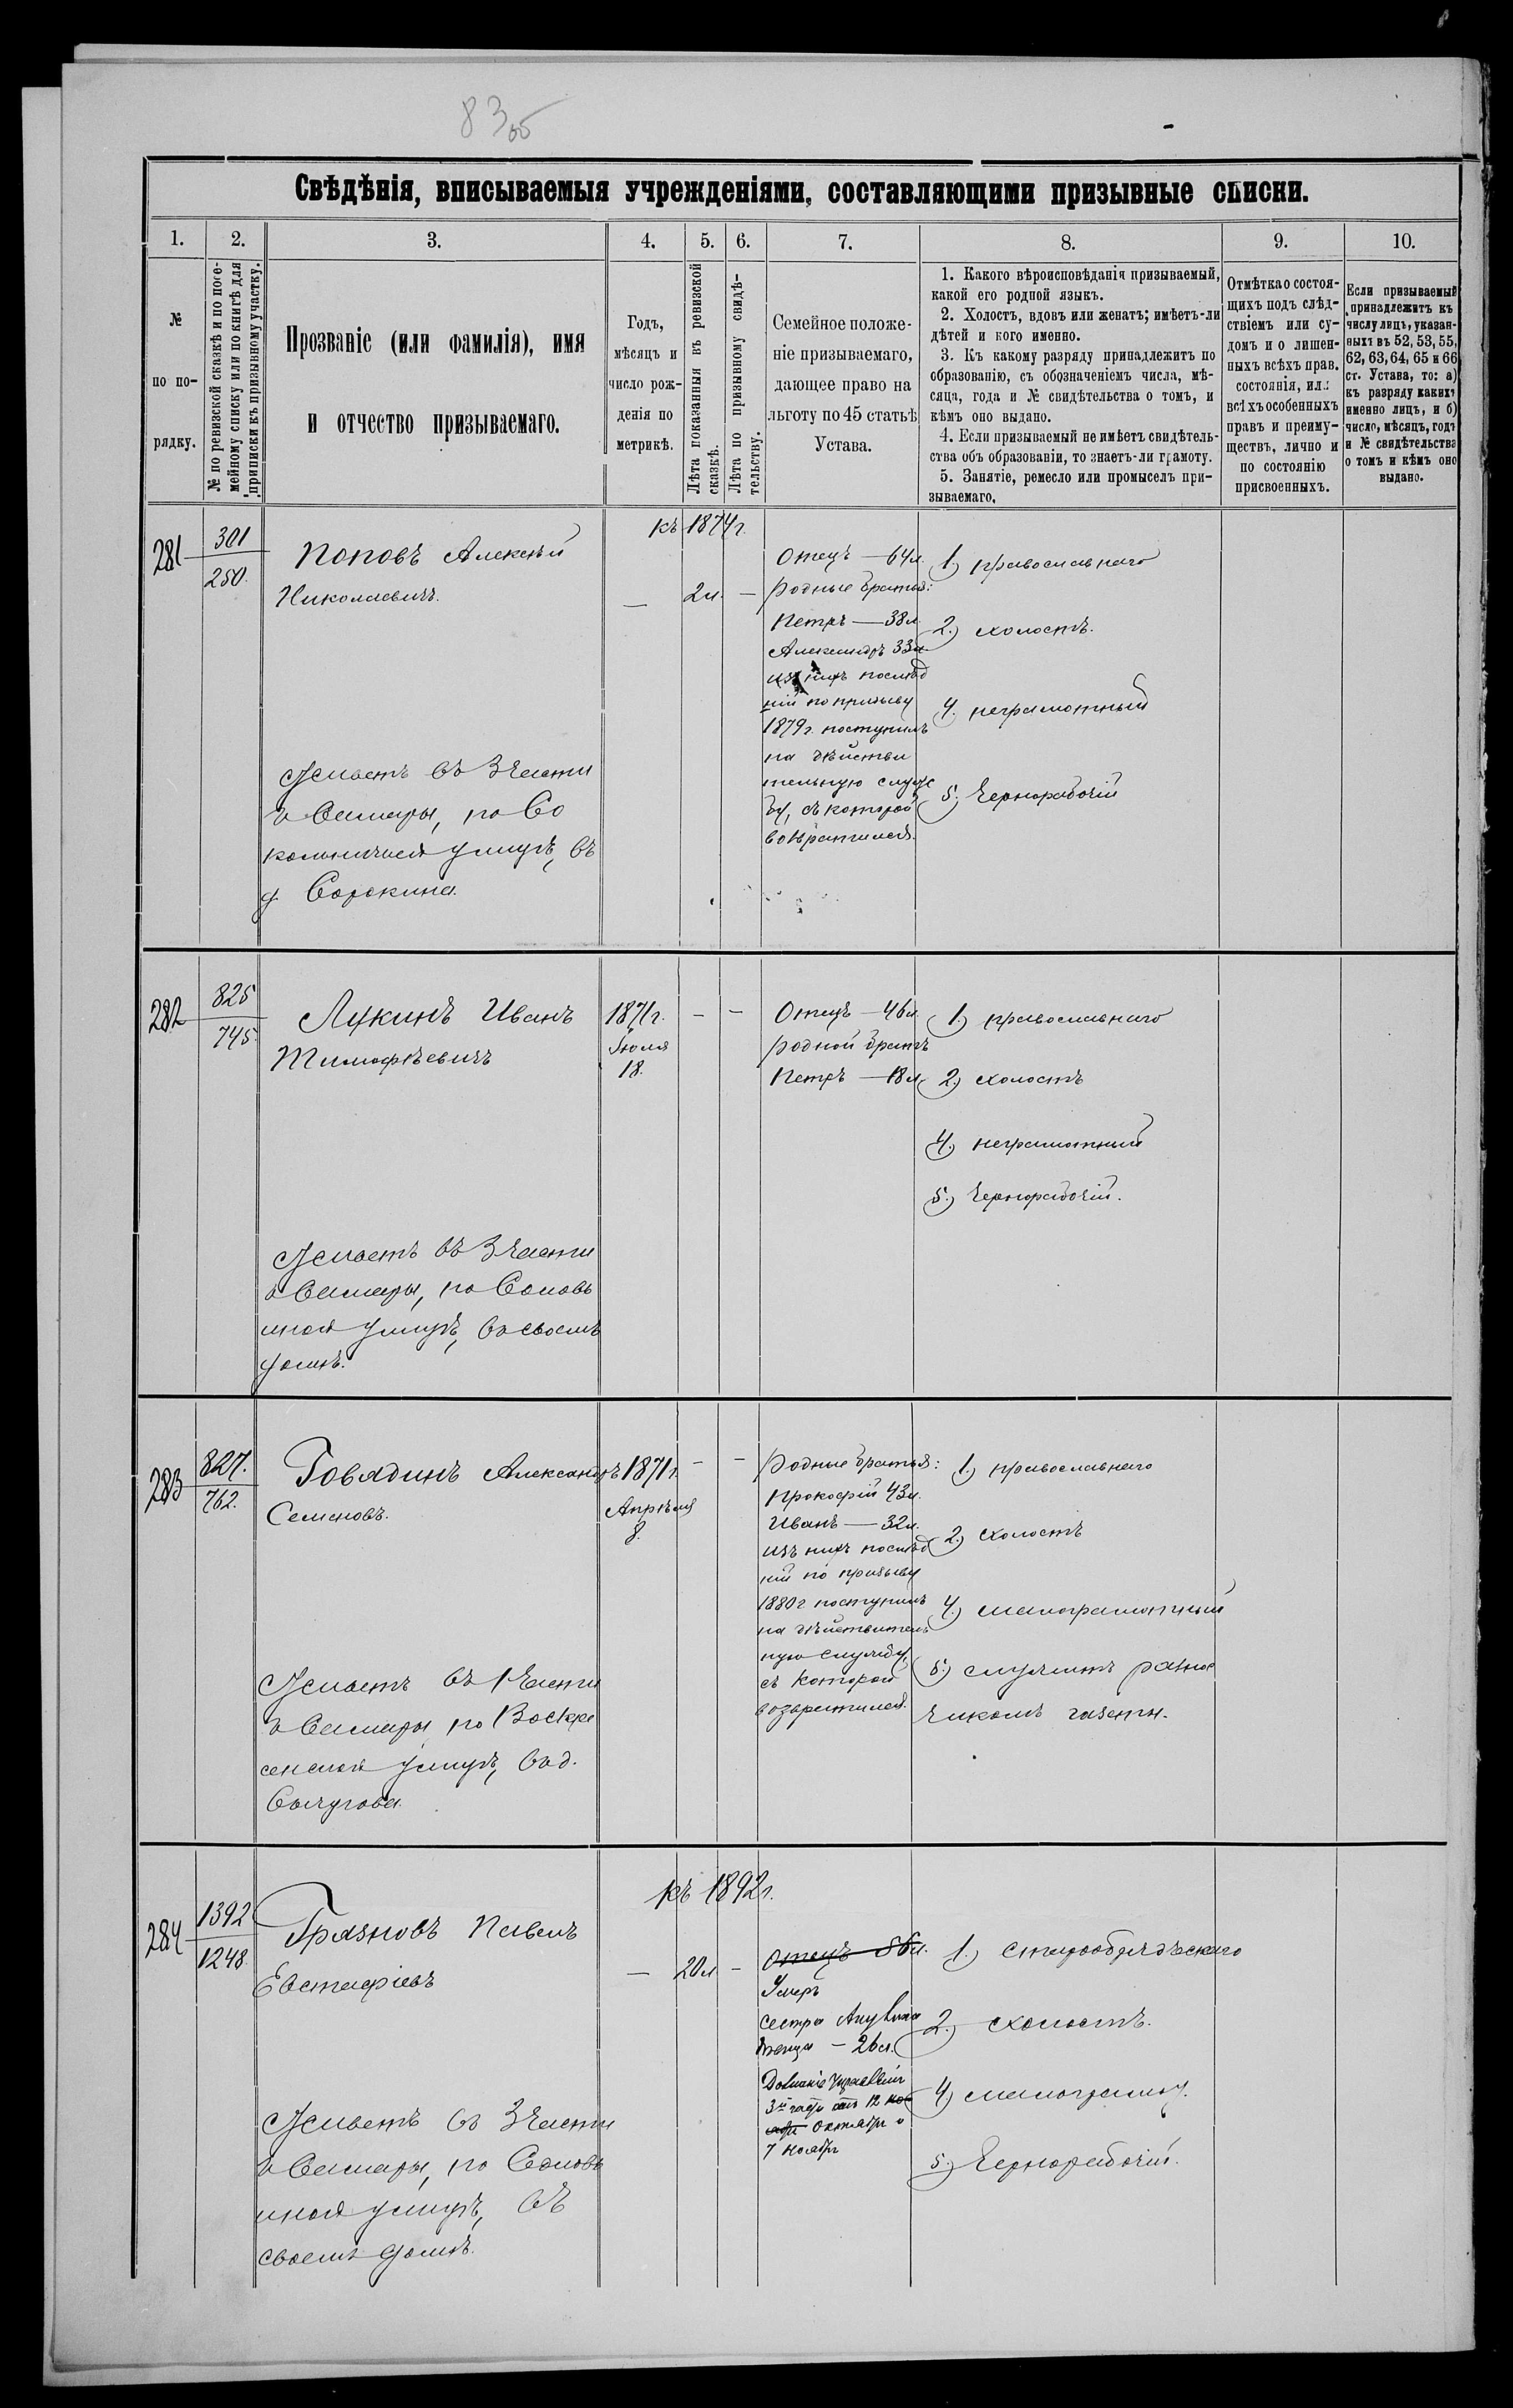 83об
Свѣдѣнія, вписываемыя учрежденіями, составляющими призывные списки.
1. 2. 3. 4. 5. 6. 7. 8. 9. 10.
№
по по-
рядку.
№ по ревизской сказкѣ и по посе-
мейному списку или по книгѣ для
приписки къ призывному участку.
Прозваніе (или фамилія), имя
и отчество призываемаго.
Годъ,
мѣсяцъ и
число рож-
денія по
метрикѣ.
Лѣта показанныя въ ревизской
сказкѣ.
Лѣта по призывному свидѣ-
тельству.
Семейное положе-
ніе призываемаго,
дающее право на
льготу по 45 статьѣ
Устава.
1. Какого вѣроисповѣданія призываемый,
какой его родной языкъ.
2. Холостъ, вдовъ или женатъ; имѣетъ-ли
дѣтей и кого именно.
3. Къ какому разряду принадлежитъ по
образованію, съ обозначеніемъ числа, мѣ-
сяца, года и № свидѣтельства о томъ, и
кѣмъ оно выдано.
4. Если призываемый не имѣетъ свидѣтель-
ства объ образованіи, то знаетъ-ли грамоту.
5. Занятіе, ремесло или промыселъ при-
зываемаго.
Отмѣтка о состоя-
щихъ подъ слѣд-
ствіемъ или су-
домъ и о лишен-
ныхъ всѣхъ прав.
состоянія, или
всѣхъ особенныхъ
правъ и преиму-
ществъ, лично и
по состоянію
присвоенныхъ.
Если призываемый
принадлежитъ къ
числу лицъ, указан-
ныхъ въ 52, 53, 55,
62, 63, 64, 65 и 66
ст. Устава, то: а)
къ разряду какихъ
именно лицъ, и б)
число, мѣсяцъ, годъ
и № свидѣтельства
о томъ и кѣмъ оно
выдано.
281
301
250.
Поповъ Алексѣй
Николаевичъ.
Живетъ въ 3 части
г Самары, по Со
кольничьей улицѣ, въ
д. Сорокина.
къ 1874 г.
— 2 л. —
Отецъ — 64 л.
Родные братья:
Петръ — 38 л.
Александръ 33 л.
изъ нихъ послѣд
ній по призыву
1879 г. поступилъ
на дѣйстви
тельную служ
бу, съ которой
возвратился.
1.) православнаго
2.) холостъ.
4. неграмотный
5.) Чернорабочій
282
825
745.
Лукинъ Иванъ
Тимофѣевичъ
Живетъ въ 3 части
г Самары, по Соловь
иной улицѣ, въ своемъ
домѣ.
1871 г.
Іюля
18.
— —
Отецъ — 46 л.
Родной братъ
Петръ — 18 л.
1.) православнаго
2.) холостъ
4.) неграмотный
5.) Чернорабочій.
283
827.
762.
Говядинъ Александръ
Семеновъ.
Живетъ въ 1 части
г Самары по Воскре
сенской улицѣ, въ д.
1871 г.
Апрѣля
8.
— —
Родные братья:
Прокофій 43 л.
Иванъ — 32 л.
изъ нихъ послѣд
ній по призыву
1880 г поступилъ
на дѣйствитель
ную службу,
съ которой
возвратился.
1.) православнаго
2.) холостъ
4.) малограмотный
5.) служитъ разнос
чикомъ газеты.
284
1392
1248
Грязновъ Павелъ
Евстафіевъ
Живетъ въ 3 части
г Самары, по Соловь
иной улицѣ, въ
своемъ домѣ.
къ 1892 г.
— 20 л —
Отецъ 56 л.
Умеръ
сестра
— 26 л.
3й части отъ 12 ноя
бря Октября и
7 ноября
1.) старообрядческаго
2.) холостъ.
4.) малограмот.
5.) Чернорабочій.